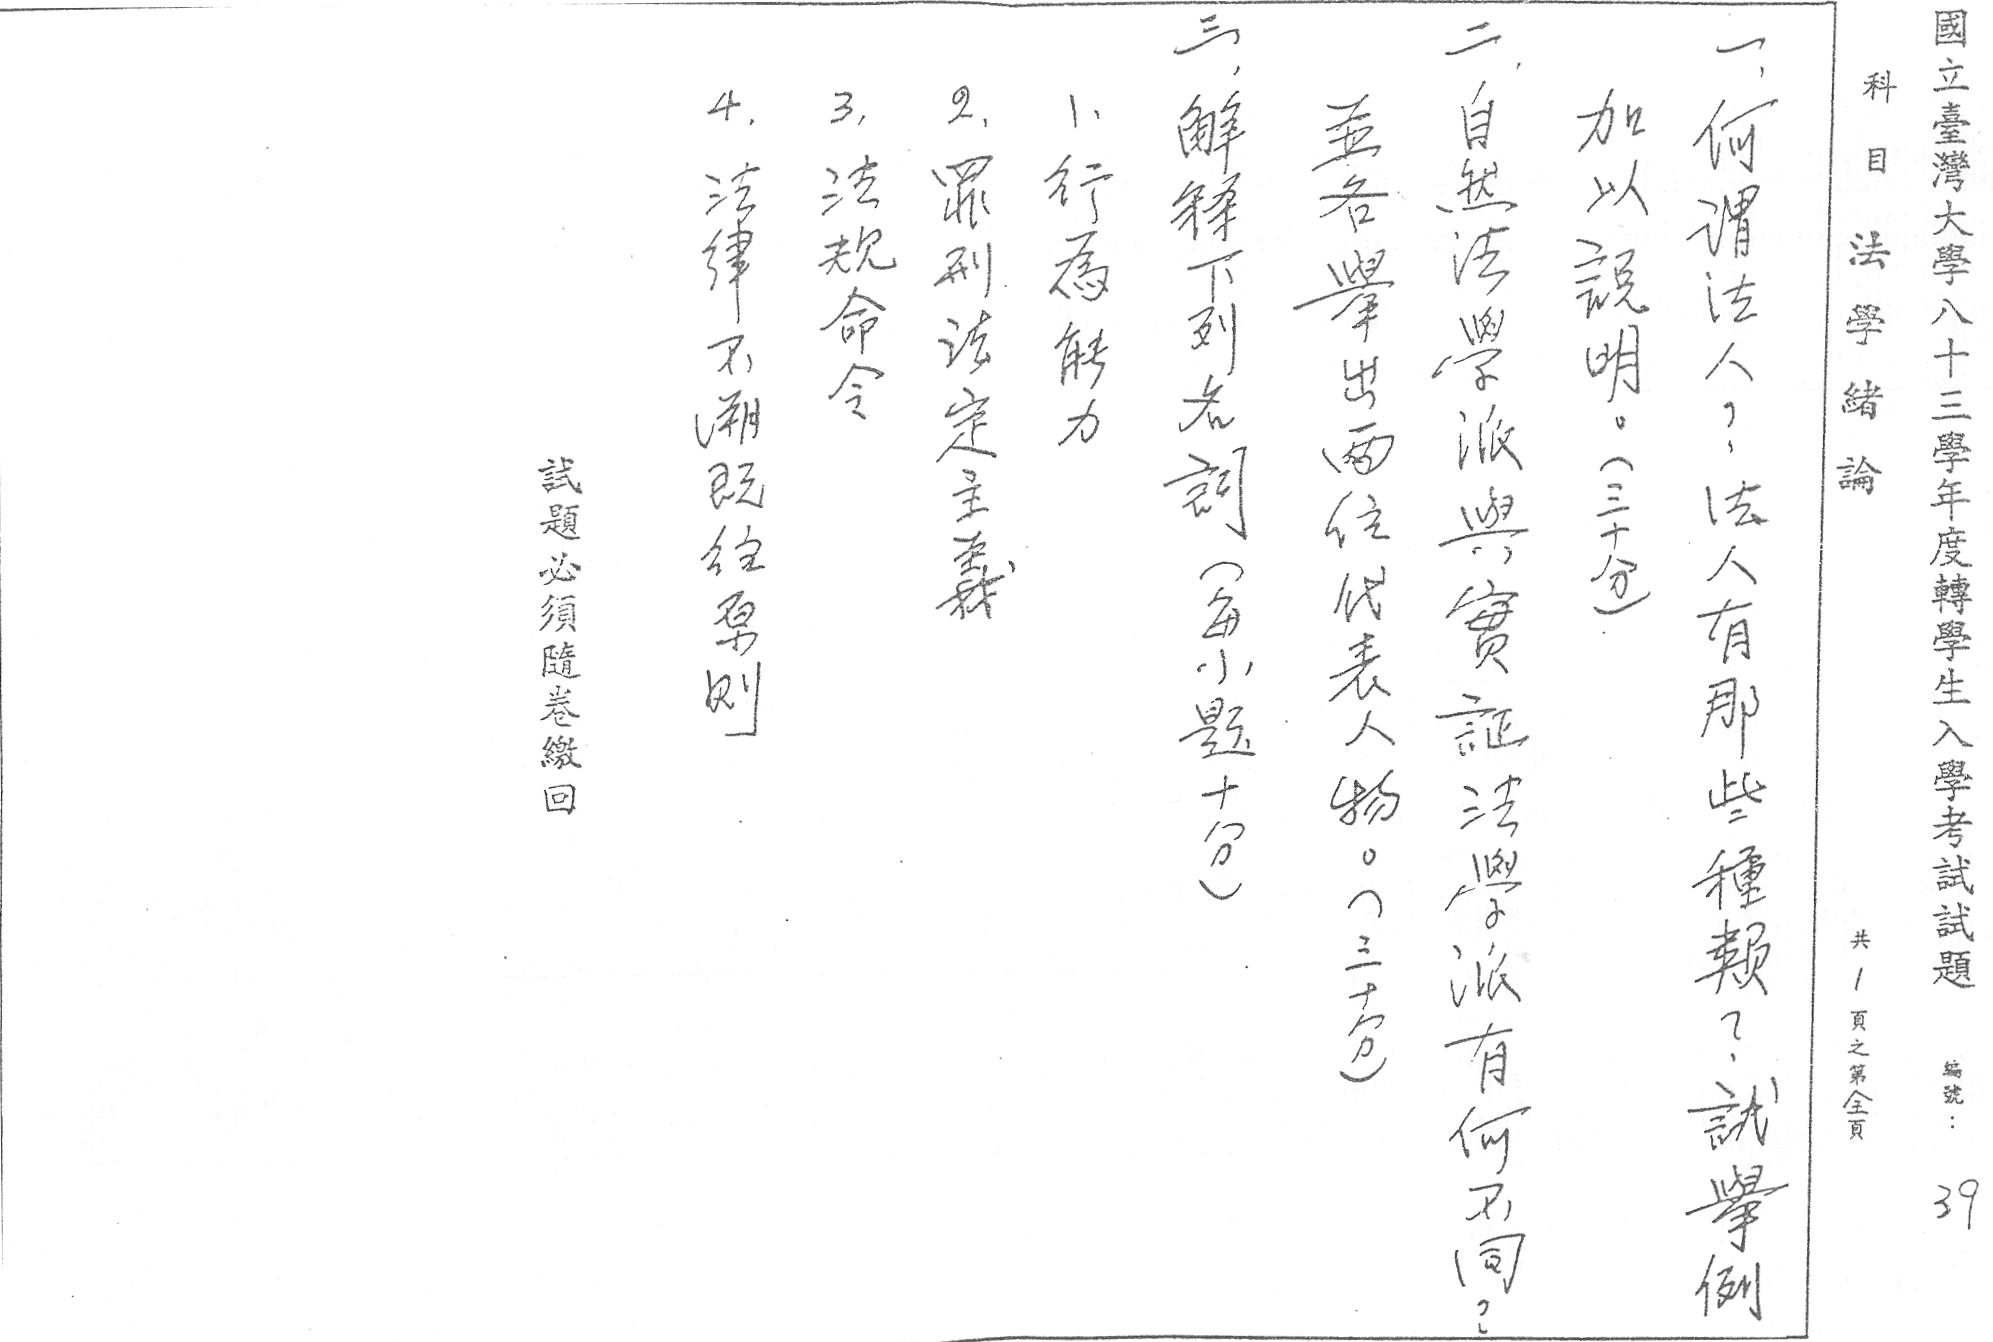 國立臺灣大學八十三學年度轉學生入學考試試題 編號：39
科目 法學緒論 共1頁之第全頁
一、何謂法人？法人有那些種類？試舉例
加以說明。（三十分）
二、自然法學派與實証法學派有何不同？
並各舉出兩位代表人物。（三十分）
三、解释下列名詞（每小題十分）
1、行為能力
2、罪刑法定主義
3、法規命令
4、法律不溯既往原則
試題必須隨卷繳回